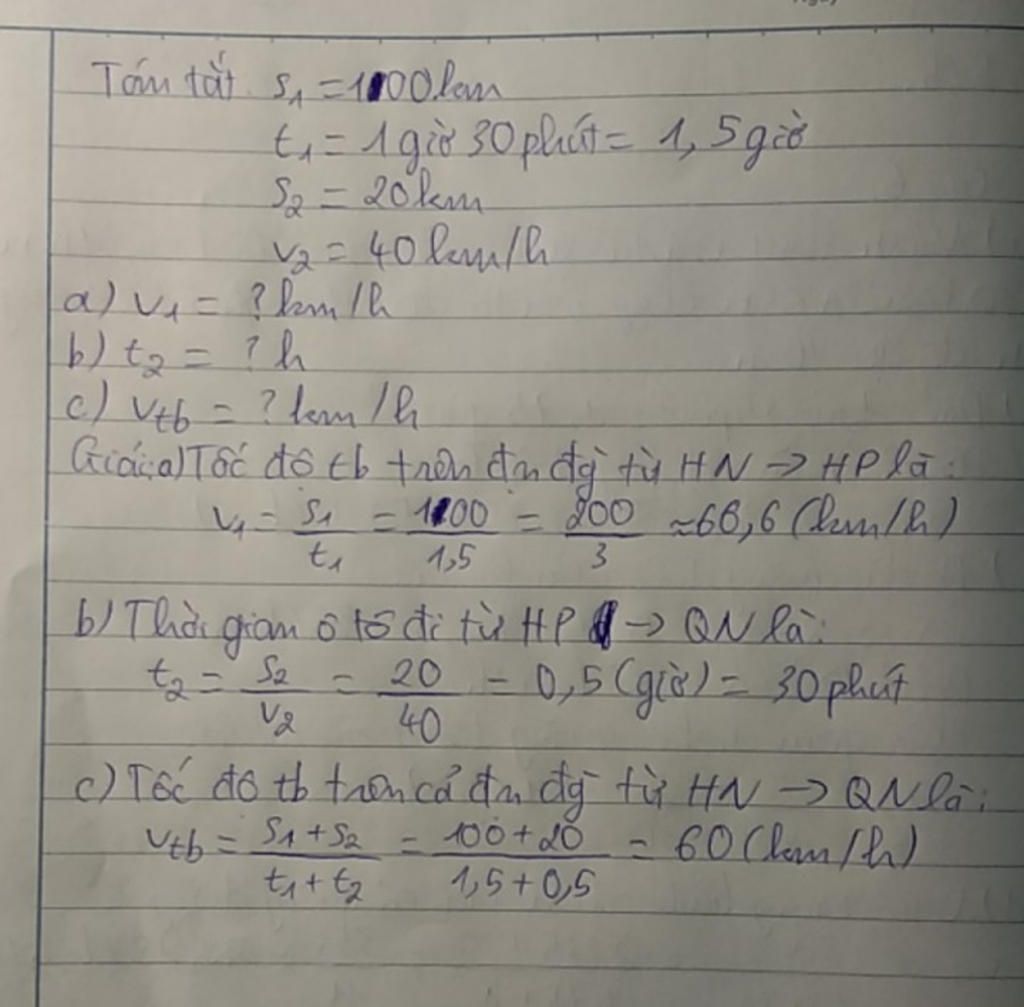 Tóm tắt s₁ = 100km
t₁ = 1 giờ 30 phút = 1,5 giờ
s₂ = 20km
v₂ = 40 km/h
a) v₁ = ? km/h
b) t₂ = ? h
c) vtb = ? km/h
Giải: a) Tốc độ tb trên đn đg từ HN → HP là:
v₁ = s₁/t₁ = 100/1,5 = 200/3 ≈ 66,6 (km/h)
b) Thời gian ô tô đi từ HP → QN là:
t₂ = s₂/v₂ = 20/40 = 0,5 (giờ) = 30 phút
c) Tốc độ tb trên cả đn đg từ HN → QN là:
vtb = s₁ + s₂/t₁ + t₂ = 100 + 20/1,5 + 0,5 = 60 (km/h)